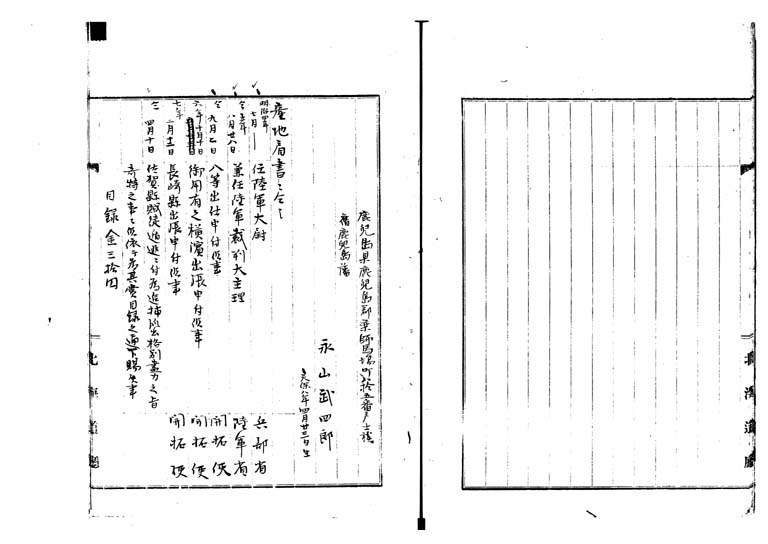 鹿兒島縣鹿兒島郡薬師馬場町拾五番戸士族
舊鹿兒島藩
永山武四郎
天保八年四月廿三日生
屯地局書
明治四年
七月 任陸軍大尉 兵部省
仝五年
八月廿八日 兼任陸軍裁判大主理 陸軍省
仝九月七日 八等出仕申付候事 開拓使
六年十月十日 御用有之横濱出張申付候事 開拓使
七年
二月十三日 長崎縣出張申付候事 開拓使
仝
四月十日 佐賀縣賊徒逃遁ニ付為追捕出格別盡力之旨
奇特之事ニ候依テ為其賞目録之通下賜候事
目録金三拾円
北海道廳
北海道廳